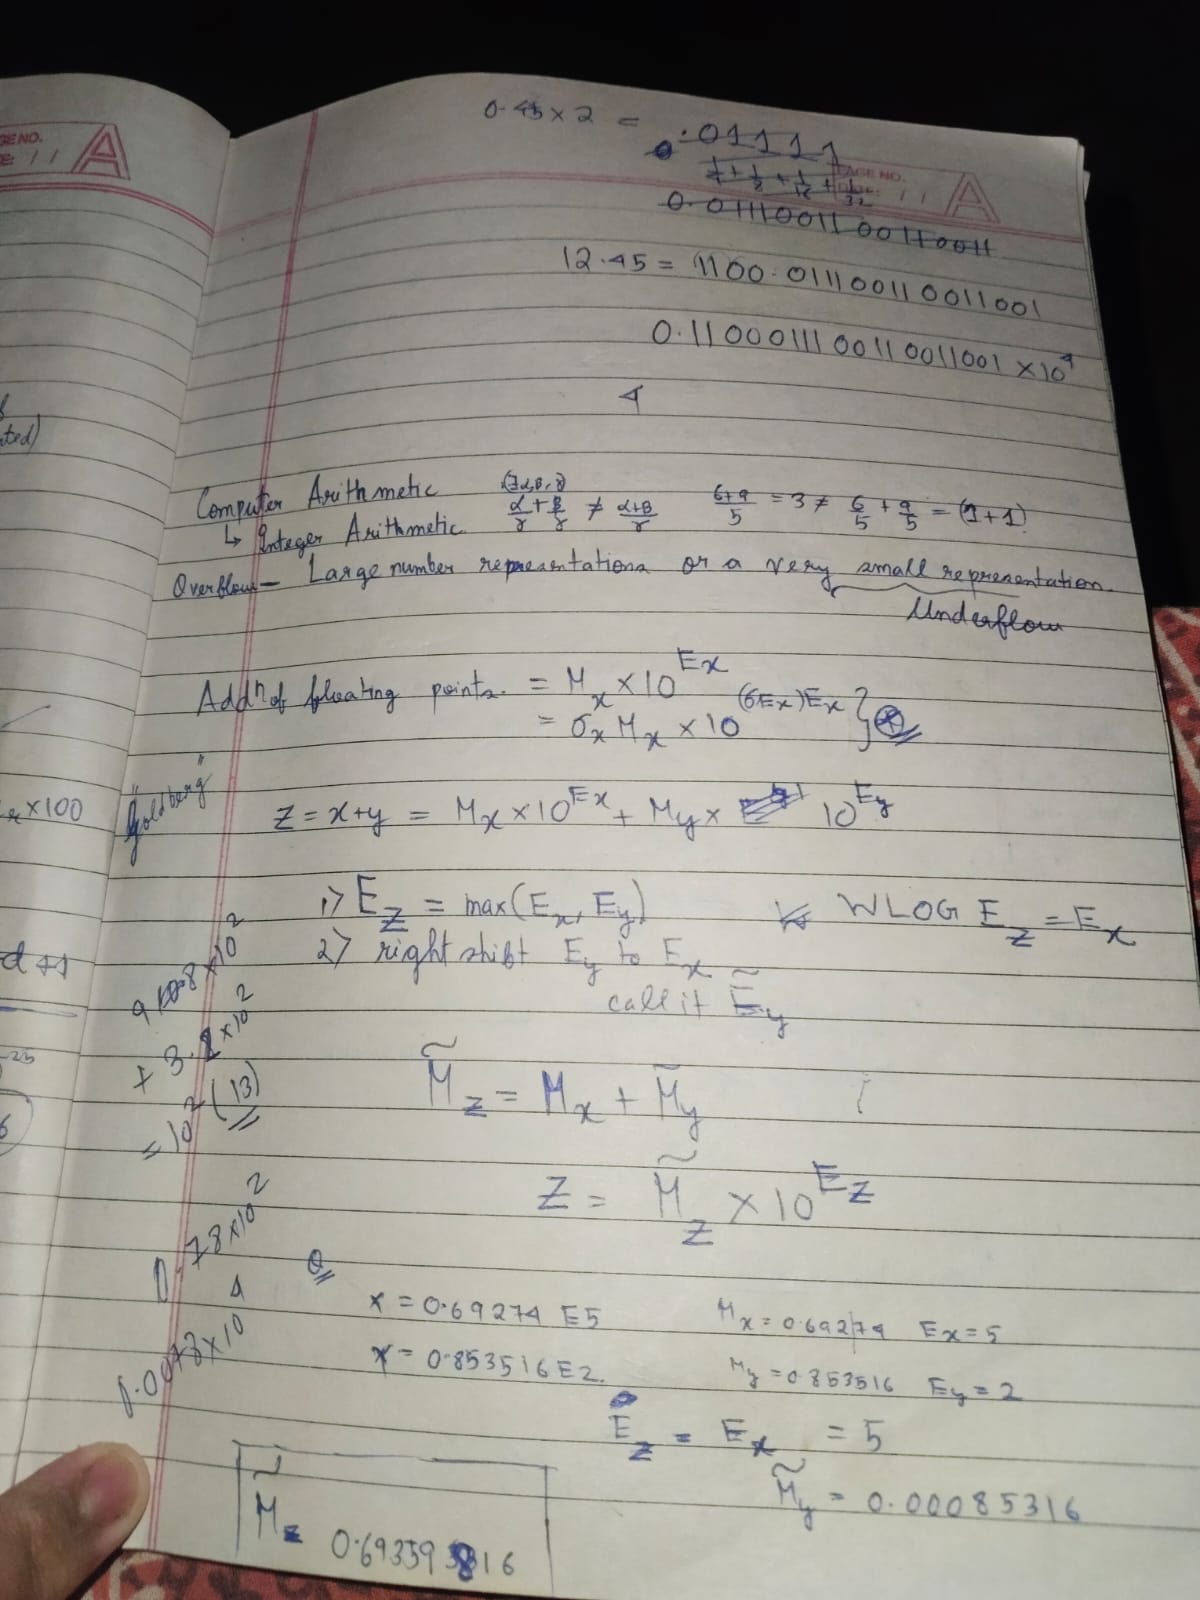 GE NO.
E: / /
A
0.45 × 2 = .01111
1/4 + 1/8 + 1/16 + 1/32
PAGE NO.
A
0.0111001100110011
12.45 = 1100.0111001100110011001
0.11000111001100110011001 × 10^4
4
Computer Arithmetic (∃α,β,γ)
↳ Integer Arithmetic. α/γ + β/γ ≠ α+β/γ 6+9/5 = 3 ≠ 6/5 + 9/5 = (1+1)
Overflow - Large number representations or a very small representation.
Underflow
Addⁿ of floating points. = Mx × 10^Ex
= σx Mx × 10^(σEx)Ex } ⊛
"Goldberg"
Z = x+y = Mx × 10^Ex + My × 10^Ey
1) Ez = max(Ex, Ey) WLOG Ez = Ex
2) right shift Ey to Ex
call it Ẽy
M̃z = Mx + M̃y
Z = M̃z × 10^Ez
Q
x = 0.69274 E5 Mx = 0.69274 Ex = 5
x = 0.853516 E2. My = 0.853516 Ey = 2
Ez = Ex = 5
M̃y = 0.00085316
M̃z 0.693593816
+ 3.2 × 10^2
= 10^2 (13)
0.78 × 10^2
0.0078 × 10^4
ted)
× 100
d
25
6